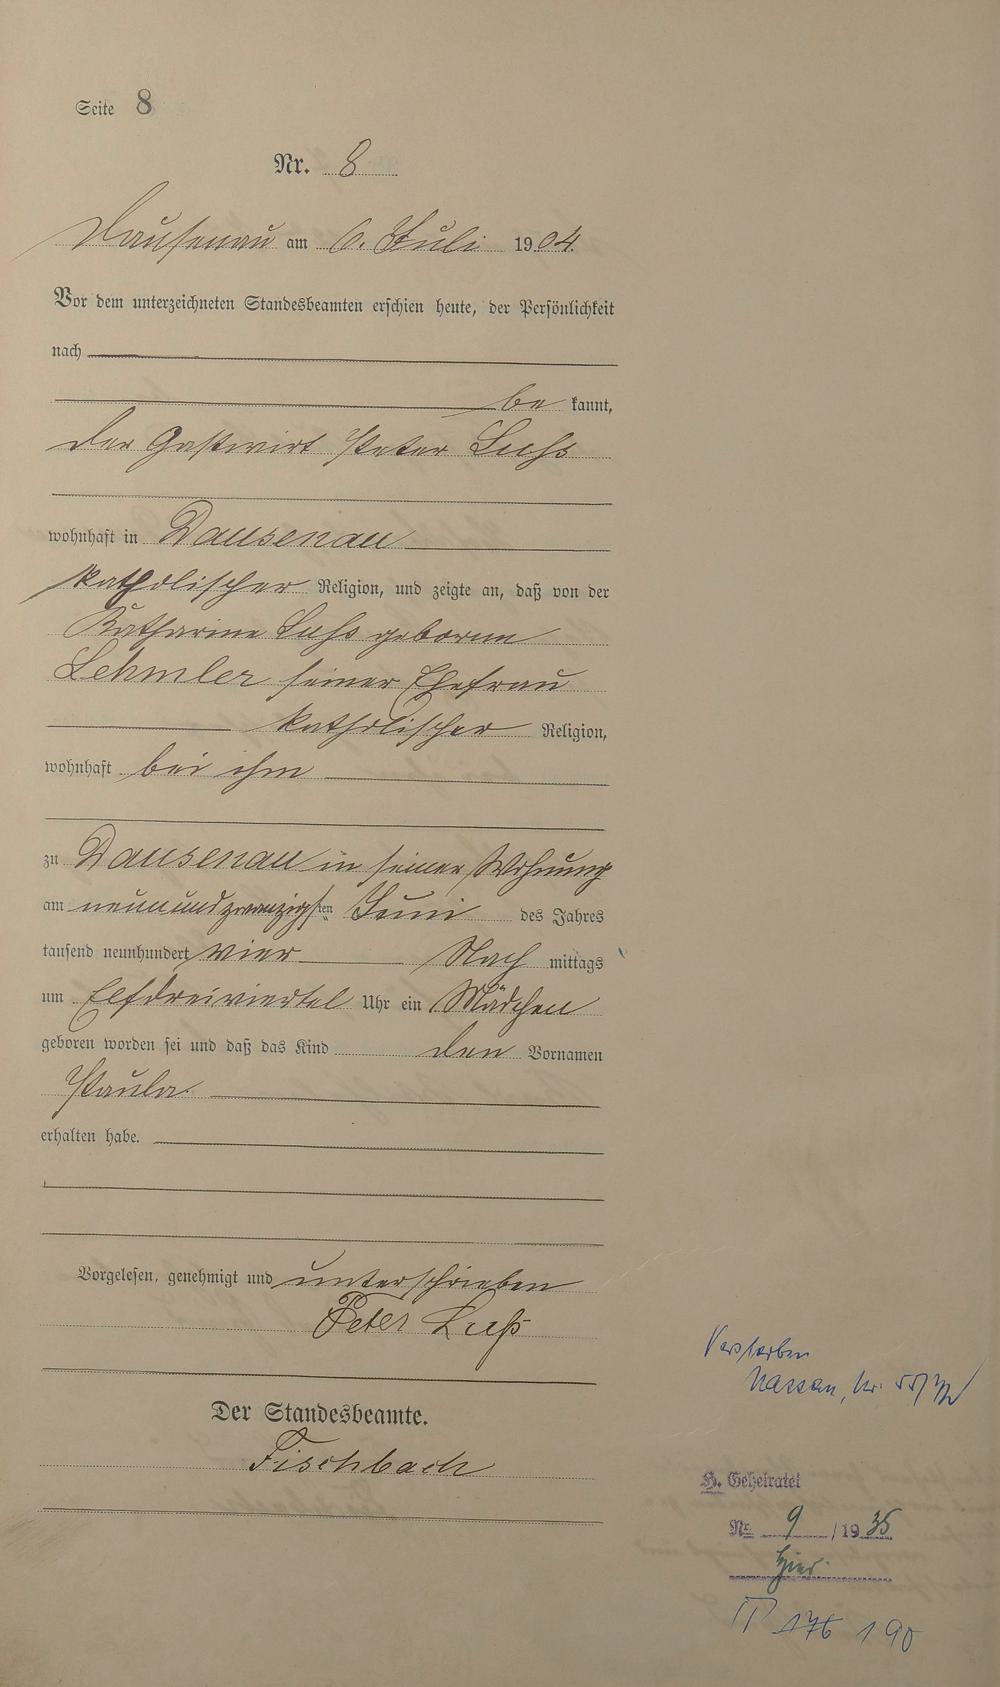 Seite 8
Nr. 8
Dausenau am 6. Juli 1904
Vor dem unterzeichneten Standesbeamten erschien heute, der Persönlichkeit
nach
be kannt,
der Gastwirt Peter Luhs
wohnhaft in Dausenau
katholischer Religion, und zeigte an, daß von der
Katharine Luhs geborene
Lehmler seiner Ehefrau
katholischer Religion,
wohnhaft bei ihm
zu Dausenau in seiner Wohnung
am neunundzwanzigsten Juni des Jahres
tausend neunhundert vier Nach mittags
um Elfdreiviertel Uhr ein Mädchen
geboren worden sei und daß das Kind den Vornamen
Paula
erhalten habe.
Vorgelesen, genehmigt und unterschrieben
Peter Luhs
Der Standesbeamte.
Fischbach
Verstorben
Nassau, Nr.
H. Geheiratet
Nr. 9 /1935
hier
176 190